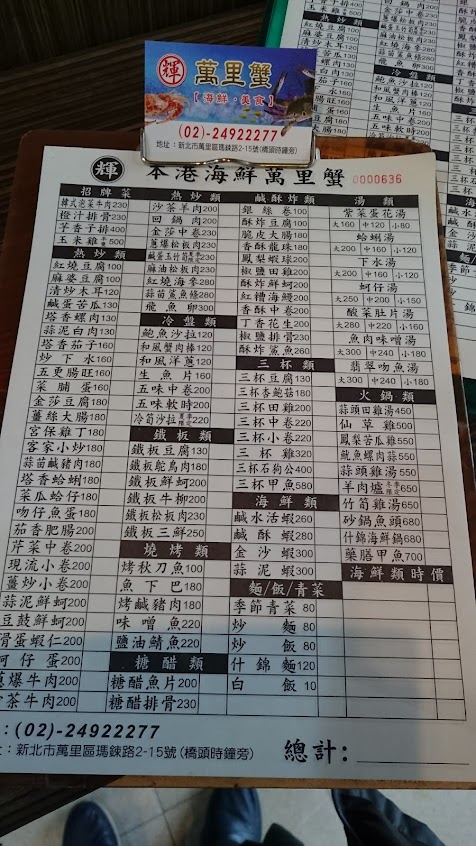 輝 萬里蟹
【海鮮·美食】
(02)-24922277
地址：新北市萬里區瑪鋉路2-15號(橋頭時鐘旁)
輝 本港海鮮萬里蟹 0000636
招牌菜
韓式泡菜牛肉230
橙汁排骨230
芋香子排400
玉米雞
熱炒類
紅燒豆腐100
麻婆豆腐100
清炒木耳120
鹹蛋苦瓜130
塔香螺肉130
蒜泥白肉130
塔香茄子160
炒下水160
五更腸旺160
菜脯蛋160
金莎豆腐180
薑絲大腸180
宮保雞丁180
客家小炒180
蒜苗鹹豬肉180
塔香蛤蜊180
菜瓜蛤仔180
吻仔魚蛋180
茄香肥腸200
芹菜中卷200
現流小卷200
薑炒小卷200
蒜泥鮮蚵200
豆鼓鮮蚵200
滑蛋蝦仁200
蚵仔蛋200
蔥爆牛肉200
熱炒類
沙茶羊肉200
回鍋肉200
金莎中卷220
蔥爆松板肉230
麻油松板肉230
紅燒海參280
蒜苗鯊魚條260
飛魚卵300
冷盤類
鮑魚沙拉120
和風蟹肉棒120
和風洋蔥120
生魚片
五味中卷200
五味軟時200
冷筍沙拉220
鐵板類
鐵板豆腐130
鐵板鴕鳥肉180
鐵板鮮蚵200
鐵板牛柳200
鐵板松板肉230
鐵板三鮮250
燒烤類
烤秋刀魚100
魚下巴180
烤鹹豬肉180
味噌魚220
鹽油鯖魚220
糖醋類
糖醋魚片200
糖醋排骨230
鹹酥炸類
銀絲卷100
酥炸豆腐100
脆皮大腸180
香酥龍珠180
鳳梨蝦球200
椒鹽田雞200
酥炸鮮蚵200
紅糟海鰻200
香酥中卷200
丁香花生200
椒鹽排骨230
酥炸鯊魚260
三杯類
三杯豆腐130
三杯杏鮑菇180
三杯田雞200
三杯中卷220
三杯小卷220
三杯雞320
三杯石狗公400
三杯甲魚580
海鮮類
鹹水活蝦260
鹹酥蝦280
金沙蝦300
蒜泥蝦300
麵/飯/青菜
季節青菜80
炒麵80
炒飯80
什錦麵120
白飯10
湯類
紫菜蛋花湯
大160 中120 小80
蛤蜊湯
大200 中160 小120
下水湯
大200 中160 小120
蚵仔湯
大250 中200 小150
酸菜肚片湯
大280 中220 小180
魚肉味噌湯
大300 中240 小180
翡翠吻魚湯
大300 中240 小180
火鍋類
蒜頭田雞湯450
仙草雞550
鳳梨苦瓜雞550
魷魚螺肉蒜550
蒜頭雞湯550
羊肉爐650
竹筍雞湯650
砂鍋魚頭680
什錦海鮮鍋680
藥膳甲魚700
海鮮類時價
：(02)-24922277
址：新北市萬里區瑪鋉路2-15號(橋頭時鐘旁)
總計：